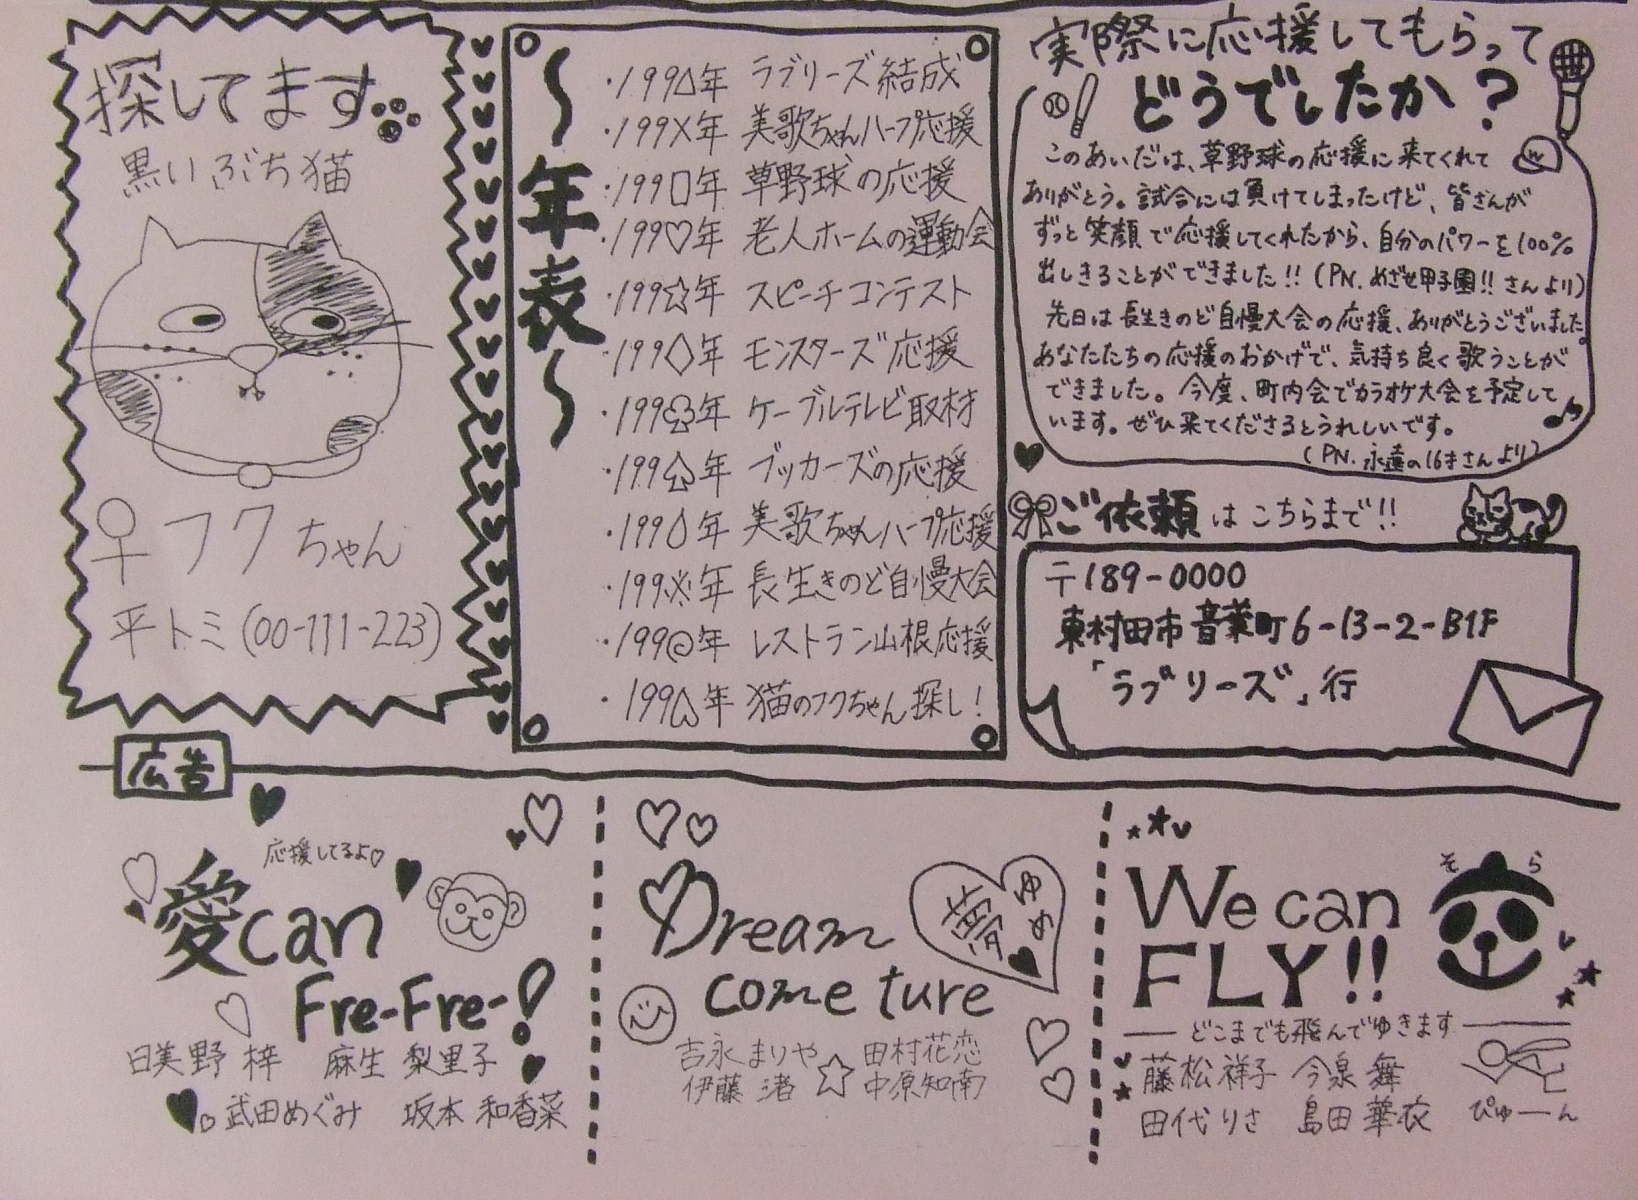 探してます
黒いぶち猫
♀フクちゃん
平トミ(00-111-223)
〜年表〜
・199△年 ラブリーズ結成
・199X年 美歌ちゃんハープ応援
・199□年 草野球の応援
・199♡年 老人ホームの運動会
・199☆年 スピーチコンテスト
・199◇年 モンスターズ応援
・199♧年 ケーブルテレビ取材
・199♤年 ブッカーズの応援
・199年 美歌ちゃんハープ応援
・199※年 長生きのど自慢大会
・199◎年 レストラン山根応援
・199年 猫のフクちゃん探し!
実際に応援してもらって
どうでしたか?
このあいだは、草野球の応援に来てくれて
ありがとう。試合には負けてしまったけど、皆さんが
ずっと笑顔で応援してくれたから、自分のパワーを100%
出しきることができました!!(PN.めざせ甲子園!!さんより)
先日は長生きのど自慢大会の応援、ありがとうございました。
あなたたちの応援のおかげで、気持ち良く歌うことが
できました。今度、町内会でカラオケ大会を予定して
います。ぜひ来てくださるとうれしいです。
(PN.永遠の16才さんより)
ご依頼はこちらまで!!
〒189-0000
東村田市音葉町6-13-2-B1F
「ラブリーズ」行
広告
応援してるよ♡
愛can
Fre-Fre-!
日美野 梓 麻生 梨里子
武田めぐみ 坂本 和香菜
Dream
夢 ゆめ
come ture
吉永まりや 田村花恋
伊藤 渚 ☆ 中原知南
We can
そら
FLY!!
どこまでも飛んでゆきます
藤松祥子 今泉 舞
田代りさ 島田華衣
ぴゅーん